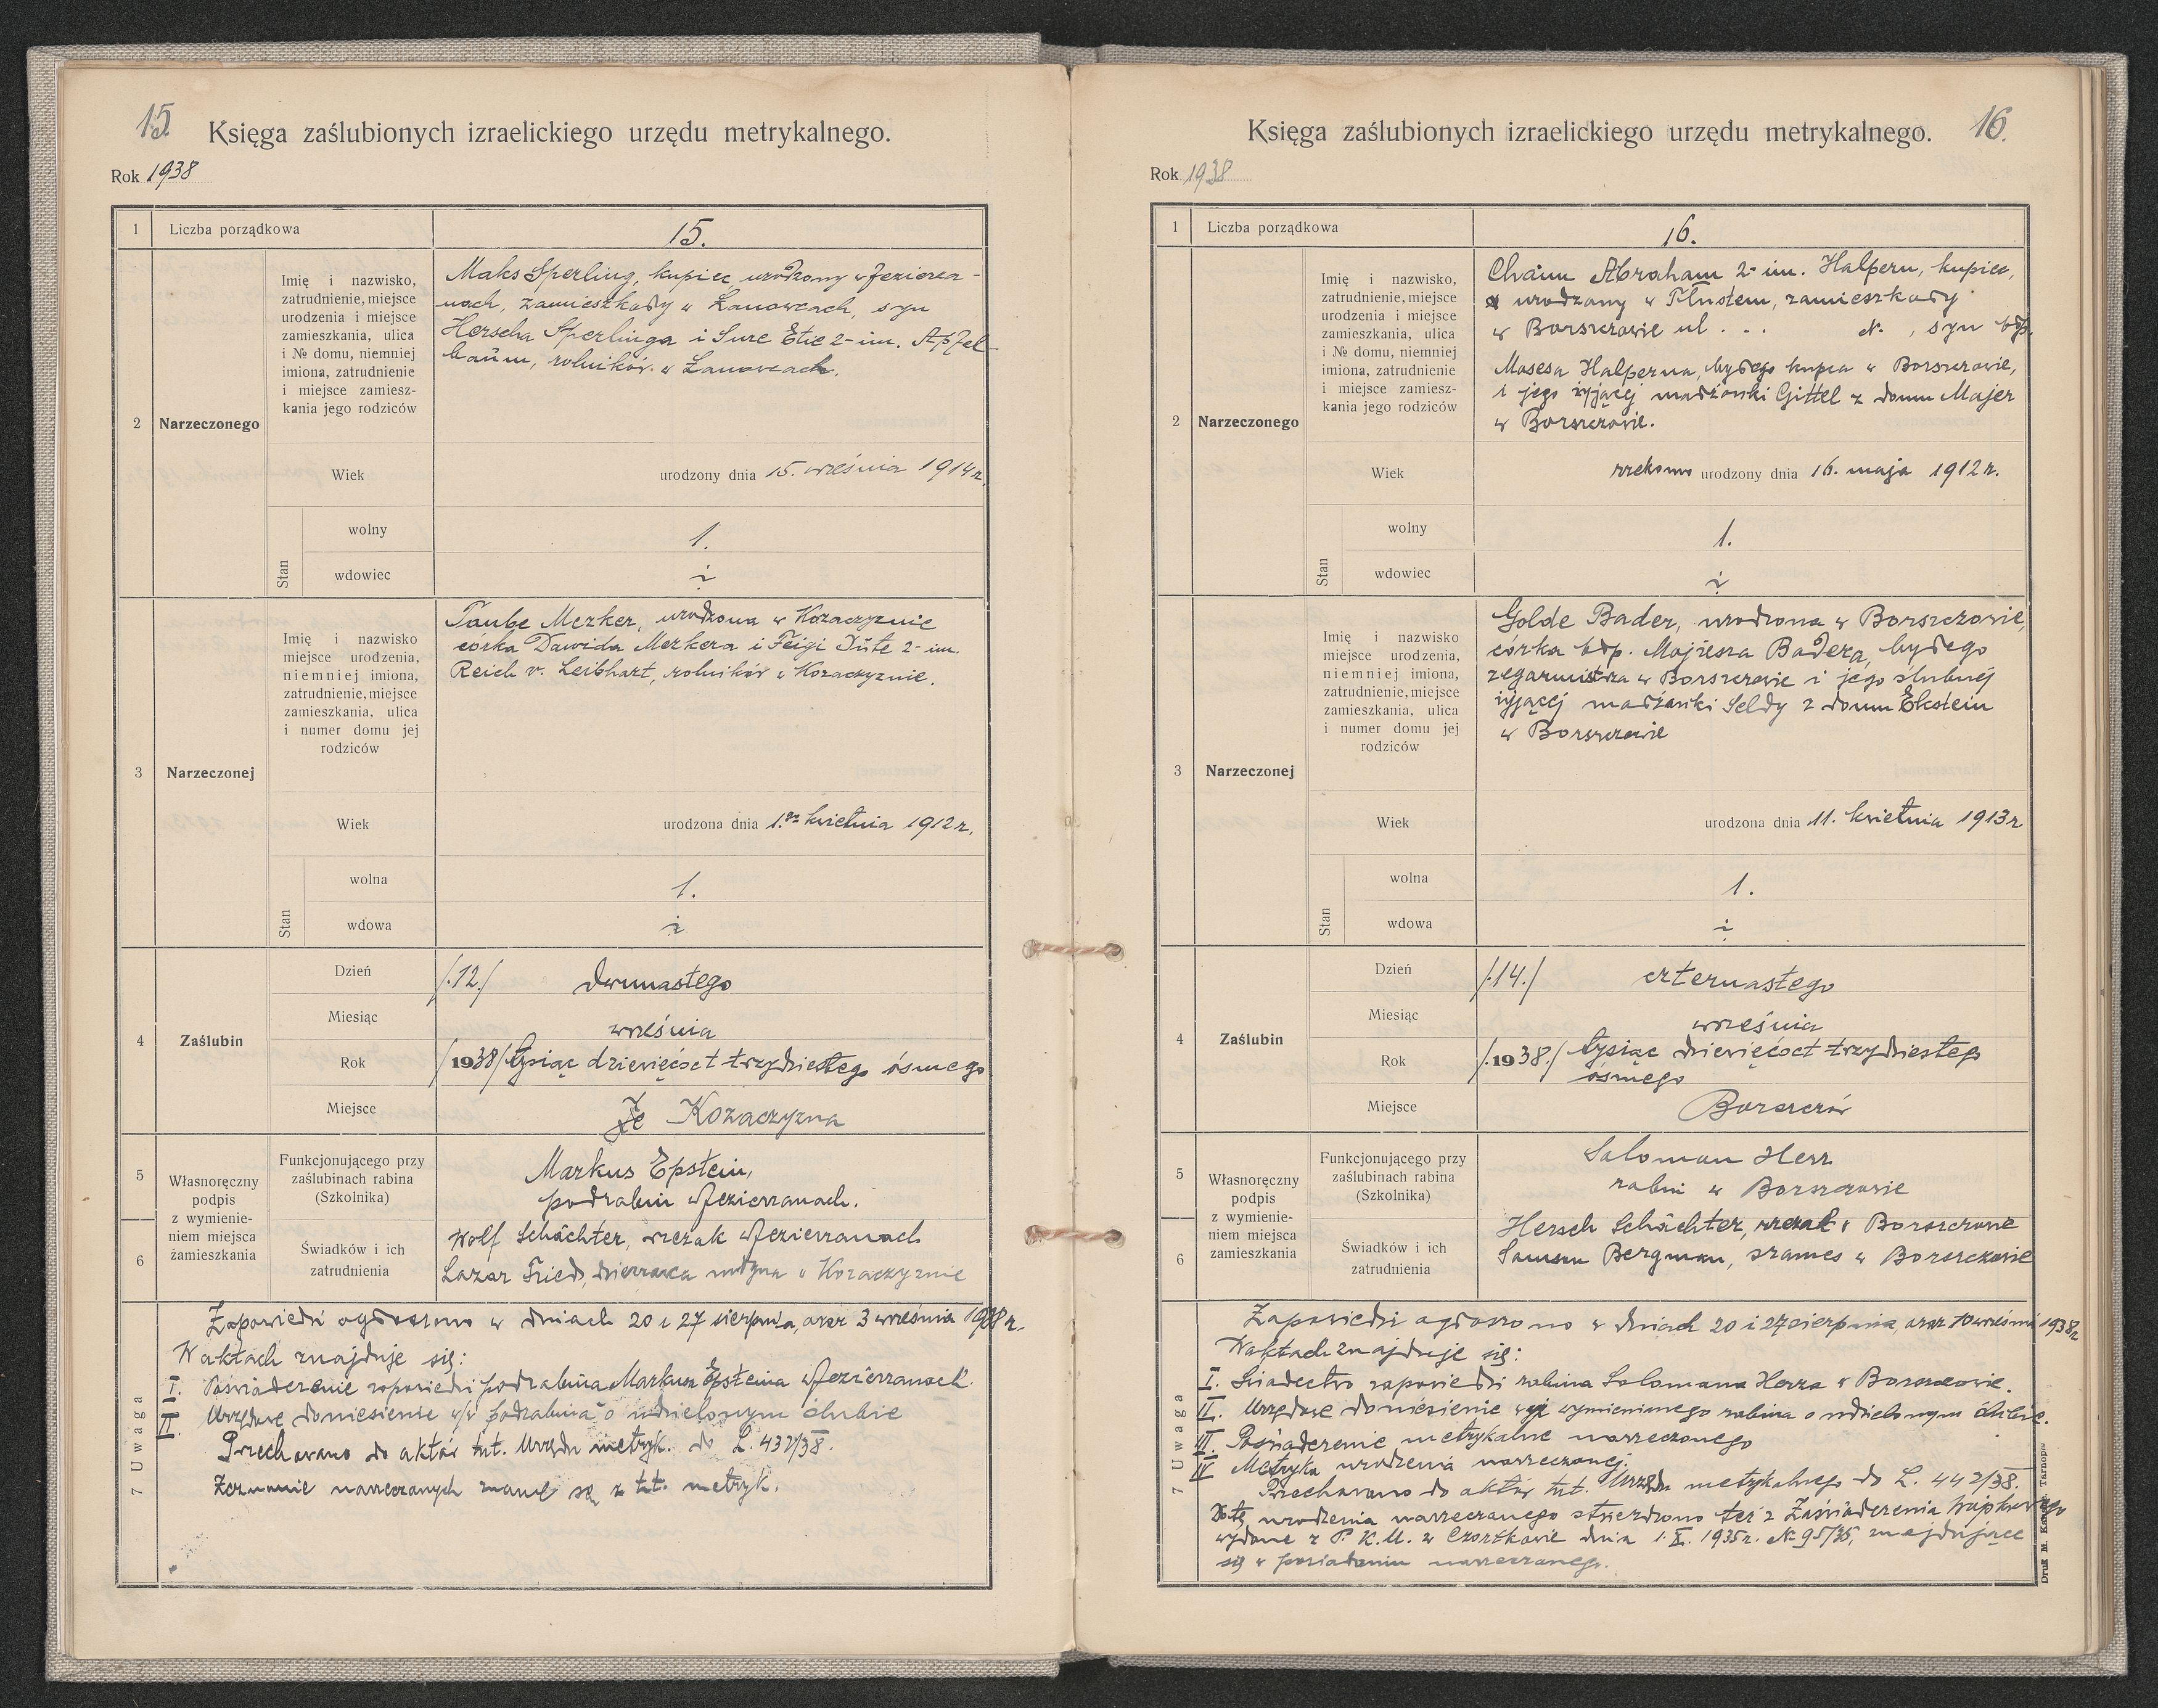 15.
Księga zaślubionych izraelickiego urzędu metrykalnego.
Rok 1938
1 Liczba porządkowa 15.
2 Narzeczonego
Imię i nazwisko,
zatrudnienie, miejsce
urodzenia i miejsce
zamieszkania, ulica
i № domu, niemniej
imiona, zatrudnienie
i miejsce zamiesz-
kania jego rodziców
Maks Sperling, kupiec urodzony w Jezierza-
nach, zamieszkały w Łanowcach, syn
Herscha Sperlinga i Sure Etie 2-im. Apfel-
baum, rolników w Łanowcach.
Wiek urodzony dnia 15. września 1914 r.
Stan
wolny 1.
wdowiec
3 Narzeczonej
Imię i nazwisko
miejsce urodzenia,
niemniej imiona,
zatrudnienie, miejsce
zamieszkania, ulica
i numer domu jej
rodziców
Taube Mezker, urodzona w Kozaczyznie
córka Dawida Mezkera i Feigi Jüte 2-im.
Reich v. Leibhart, rolników w Kozaczyznie.
Wiek urodzona dnia 1.go kwietnia 1912 r.
Stan
wolna 1.
wdowa
4 Zaślubin
Dzień /.12./ dwunastego
Miesiąc września
Rok /1938/ tysiąc dziewięćset trzydziestego ósmego
Miejsce Kozaczyzna
5
6
Własnoręczny
podpis
z wymienie-
niem miejsca
zamieszkania
Funkcjonującego przy
zaślubinach rabina
(Szkolnika)
Markus Epstein,
podrabin w Jezierzanach.
Świadków i ich
zatrudnienia
Wolf Schächter, rzezak w Jezierzanach
Lazar Fried, dzierżawca młyna w Kozaczyznie
7 Uwaga
Zapowiedzi ogłoszono w dniach 20 i 27 sierpnia, oraz 3 września 1938 r.
W aktach znajduje się:
I. Poświadczenie zapowiedzi podrabina Markusa Epsteina w Jezierzanach.
II. Urzędowe doniesienie w/w podrabina o udzielonym ślubie
Przechowano do aktów tut. Urzędu metryk. do L. 432/38.
Zeznanie narzeczonych z tt. metryk.
16.
Księga zaślubionych izraelickiego urzędu metrykalnego.
Rok 1938
1 Liczba porządkowa 16.
2 Narzeczonego
Imię i nazwisko,
zatrudnienie, miejsce
urodzenia i miejsce
zamieszkania, ulica
i № domu, niemniej
imiona, zatrudnienie
i miejsce zamiesz-
kania jego rodziców
Chaim Abraham 2-im. Halpern, kupiec,
urodzony w Tłustem, zamieszkały
w Borszczowie ul . . . N. , syn błp.
Mosesa Halperna, byłego kupca w Borszczowie,
i jego żyjącej małżonki Gittel z domu Majer
w Borszczowie.
Wiek rzekomo urodzony dnia 16. maja 1912 r.
Stan
wolny 1.
wdowiec
3 Narzeczonej
Imię i nazwisko
miejsce urodzenia,
niemniej imiona,
zatrudnienie, miejsce
zamieszkania, ulica
i numer domu jej
rodziców
Golde Bader, urodzona w Borszczowie,
córka błp. Mojżesza Badera, byłego
zegarmistrza w Borszczowie i jego ślubnej
żyjącej małżonki Seldy z domu Ekstein
w Borszczowie
Wiek urodzona dnia 11. kwietnia 1913 r
Stan
wolna 1.
wdowa
4 Zaślubin
Dzień /.14./ czternastego
Miesiąc września
Rok /.1938./ tysiąc dziewięćset trzydziestego
ósmego
Miejsce Borszczów
5
6
Własnoręczny
podpis
z wymienie-
niem miejsca
zamieszkania
Funkcjonującego przy
zaślubinach rabina
(Szkolnika)
Saloman Herz
rabin w Borszczowie
Świadków i ich
zatrudnienia
Hersch Schächter, rzezak w Borszczowie
Samson Bergman, szames w Borszczowie
7 Uwaga
Zapowiedzi ogłoszono w dniach 20 i 27 sierpnia, oraz 10 września 1938 r.
W aktach znajduje się:
I. Świadectwo zapowiedzi rabina Salomana Herza w Borszczowie.
II. Urzędowe doniesienie wyż wymienionego rabina o udzielonym ślubie.
III. Poświadczenie metrykalne narzeczonego
IV Metryka urodzenia narzeczonej.
Przechowano do aktów tut. Urzędu metrykalnego do L. 442/38.
Datę urodzenia narzeczonego stwierdzono też z Zaświadczenia wojskowego
wydane z P. K. U. w Czortkowie dnia 1. X. 1935 r. N 95/35, znajdujące
się w posiadaniu narzeczonego.